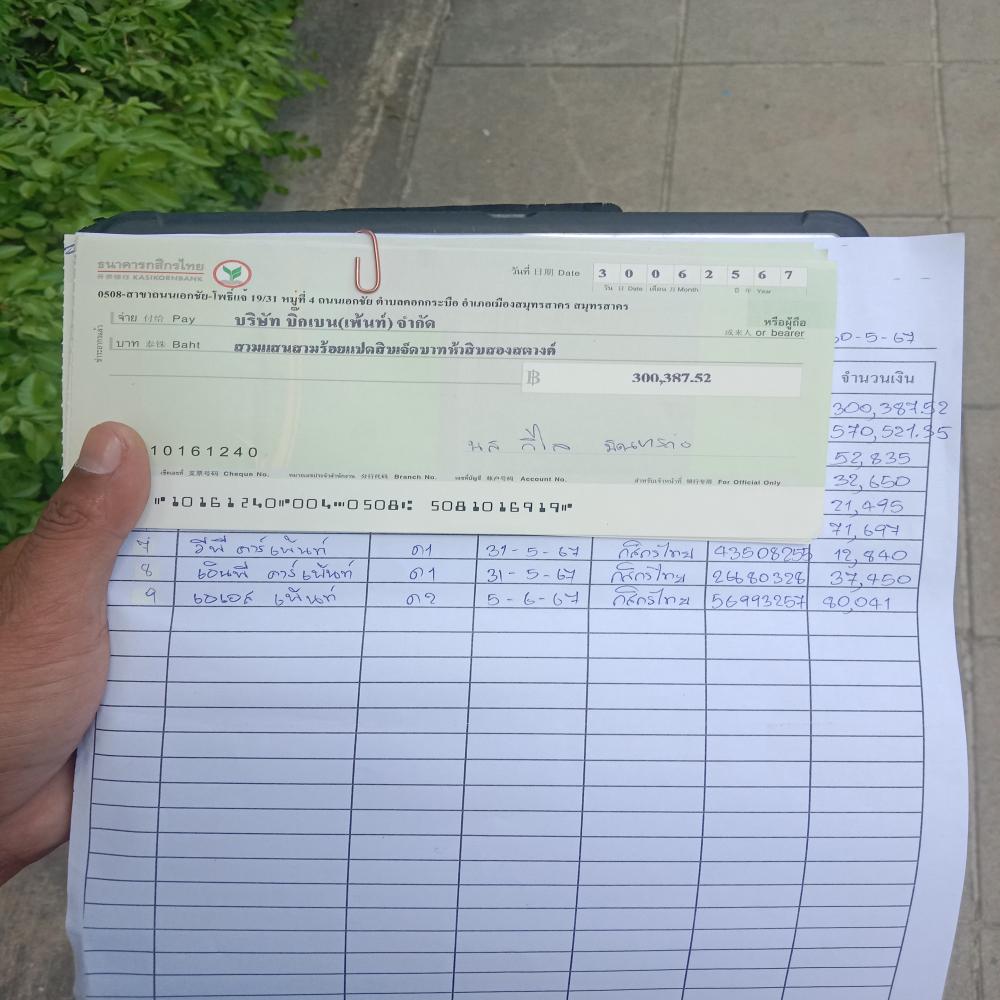 ธนาคารกสิกรไทย
开泰银行 KASIKORNBANK
วันที่ 日期 Date 3 0 0 6 2 5 6 7
วัน 日 Date เดือน 月 Month ปี 年 Year
0508-สาขาถนนเอกชัย-โพธิ์แจ้ 19/31 หมู่ที่ 4 ถนนเอกชัย ตำบลคอกกระบือ อำเภอเมืองสมุทรสาคร สมุทรสาคร
จ่าย 付给 Pay บริษัท บิ๊กเบน(เพ้นท์) จำกัด หรือผู้ถือ
或来人 or bearer
บาท 泰铢 Baht สามแสนสามร้อยแปดสิบเจ็ดบาทห้าสิบสองสตางค์
฿ 300,387.52
10161240
เช็คเลขที่ 支票号码 Cheque No. 分行代码 Branch No. เลขที่บัญชี 账户号码 Account No. สำหรับเจ้าหน้าที่ 银行专用 For Official Only
⑈10161240⑈004⑉0508⑆ 5081016919⑈
0-5-67
จำนวนเงิน
300,387.52
570,521.35
52,835
32,650
21,495
71,697
7 วีพี คาร์เพ้นท์ ด1 31-5-67 กสิกรไทย 43508255 12,840
8 เอ็นพี คาร์เพ้นท์ ด1 31-5-67 กสิกรไทย 26680328 37,450
9 เอเอส เพ้นท์ ด2 5-6-67 กสิกรไทย 56993257 80,041